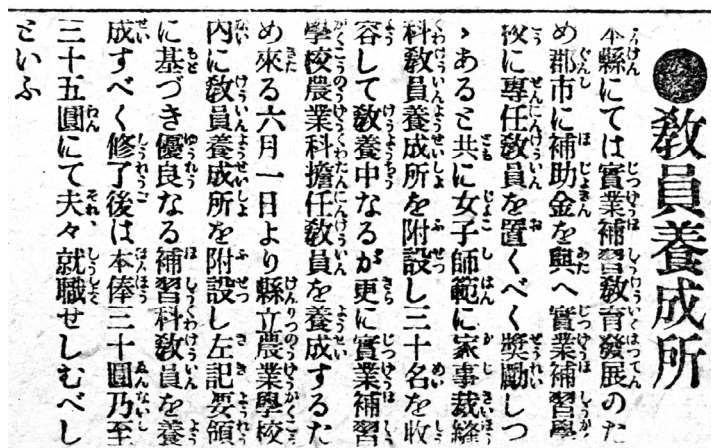 ●教員養成所
本縣にては實業補習教育發展のた
め郡市に補助金を與へ實業補習學
校に專任教員を置くべく奬勵しつ
ゝあると共に女子師範に家事裁縫
科教員養成所を附設し三十名を收
容して教養中なるが更に實業補習
學校農業科擔任教員を養成するた
め來る六月一日より縣立農業學校
内に教員養成所を附設し左記要領
に基づき優良なる補習科教員を養
成すべく修了後は本俸三十圓乃至
三十五圓にて夫々就職せしむべし
といふ